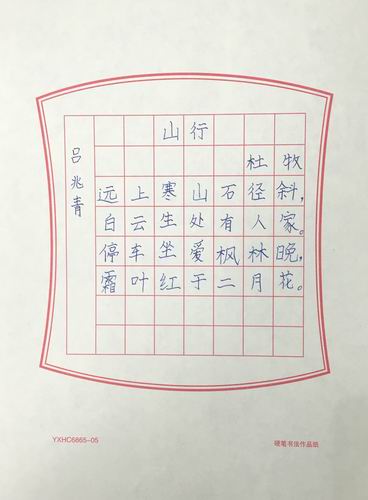 山行
杜牧
远上寒山石径斜，
白云生处有人家。
停车坐爱枫林晚，
霜叶红于二月花。
吕兆青
YXHC6865-05
硬笔书法作品纸